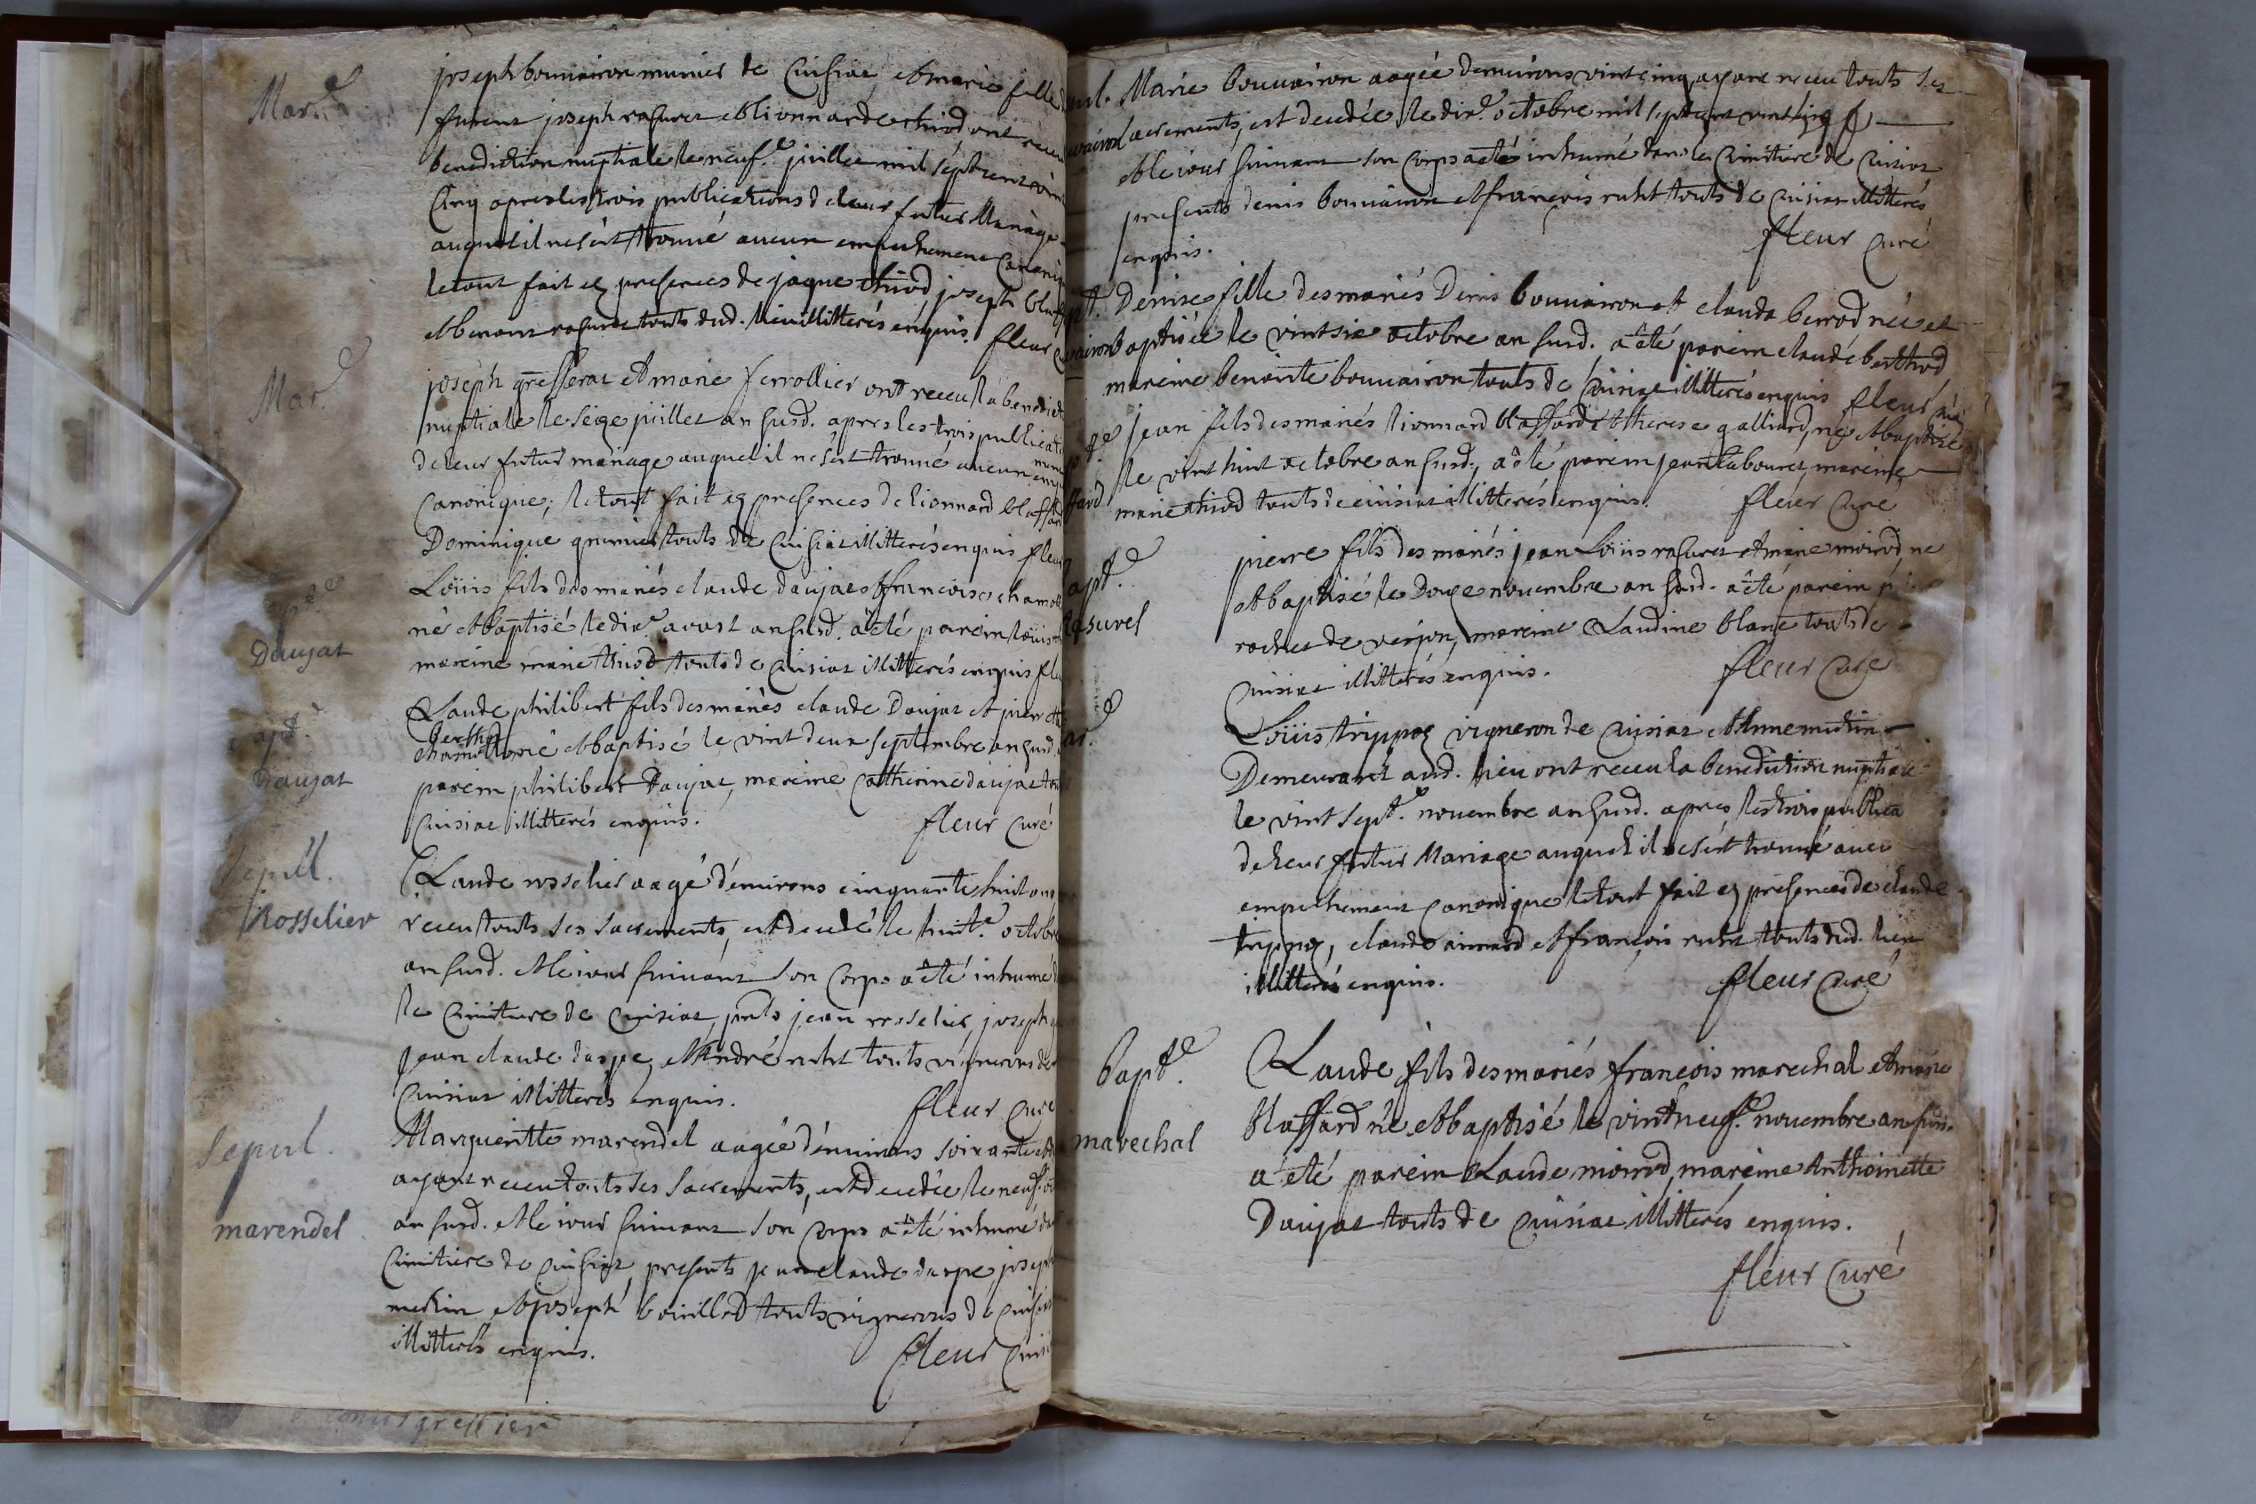 Mar.e
joseph bouvairon munier de Cuisiat et marie fille
furent joseph rasurel et lionnarde thivod ont receu
benediction nuptiale le neuf.e juillet mil sept cent vint
Cinq apres les trois publications de leur futur Mariage
auquel il ne s'est trouvé aucun empechement Canoniq
le tout fait es presences de jaque thivod joseph
et benoit rasurel touts dud. lieu illitterés enquis. fleur
Mar.e
joseph gresserat et marie ferrollier ont receu la benedict
nuptiale le seize juillet an susd. apres les trois publicat
de leur futur mariage auquel il ne s'est trouvé aucun
Canonique; le tout fait es presences de lionnard blaffard
Dominique touts de Cuisiat illitterés enquis fleur
Daujat
Loüis fils des mariés claude daujat et francoise
né et baptisé le dix.e aoust an susd. a eté parein loüis
mareine marie thivod touts de Cuisiat illitterés enquis
apt.e
Daujat
Claude philibert fils des mariés claude Daujat et pierrette
berthod né et baptisé le vint deux septembre an susd.
parein philibert Daujat, mareine Catherine daujat
Cuisiat illitterés enquis. fleur curé
Sepul.
Rosselier
Claude rosselier aagé d'environs cinquante huit ans
receu touts ses sacrements, est decedé le huit.e octobre
an susd. et le iour suivant son corps a eté inhumé
le Cimitiere de Cuisiat, pnts jean rosselier, joseph
jean claude daspe, et André ruht touts vignerons de
Cuisiat illitterés enquis. fleur curé
Sepul.
marendel
Margueritte marendel aagée d'environs soixante
ayant receu touts ses sacrements, est decedée le neuf.e
an susd. et le iour suivant son corps a eté inhumé
Cimitiere de Cuisiat, presents jean claude daspe joseph
mathin et joseph bouillod touts vignerons de Cuisiat
illitterés enquis. fleur curé
greffier
Marie bouvairon aagée d'environs vint cinq ayant receu touts ses
sacrements, est decedée le dix.e octobre mil sept cent vint cinq
et le iour suivant son corps a eté inhumé dans le Cimitiere de Cuisiat
presents denis bouvairon et françois ruht touts de Cuisiat illitterés
enquis. fleur curé
Denise fille des mariés Denis bouvairon et claude berrod née et
baptisée le vint six octobre an susd. a eté parein claude berthod
mareine benoite bouvairon touts de Cuisiat illitterés enquis fleur curé
jean fils des mariés lionnard blaffard et therese galliard, né et baptisé
ffard
le vint huit octobre an susd., a eté parein jean labouret, mareine
marie thivod touts de cuisiat illitterés enquis. fleur curé
apt.e
Rasurel
pierre fils des mariés jean Loüis rasurel et marie moirod né
et baptisé le Douze novembre an susd. a eté parein
rochet de verjon, mareine Claudine blanc touts de
Cuisiat illitterés enquis. fleur curé
ar.e
Loüis trippoz vigneron de Cuisiat et Anne mathin
Demeurant aud. lieu ont receu la benediction nuptiale
le vint sept.e novembre an susd. apres les trois publica
de leur futur Mariage auquel il ne s'est trouvé aucu
empechement canonique le tout fait es presences de claude
trippoz, claude aimard et françois ruht touts dud. lieu
illitterés enquis. fleur curé
bapt.e
marechal
Claude fils des mariés francois marechal et marie
blaffard né et baptisé le vint neuf.e novembre an susd.
a eté parein Claude moirod, mareine Anthoinette
Daujat touts de Cuisiat illitterés enquis.
fleur curé